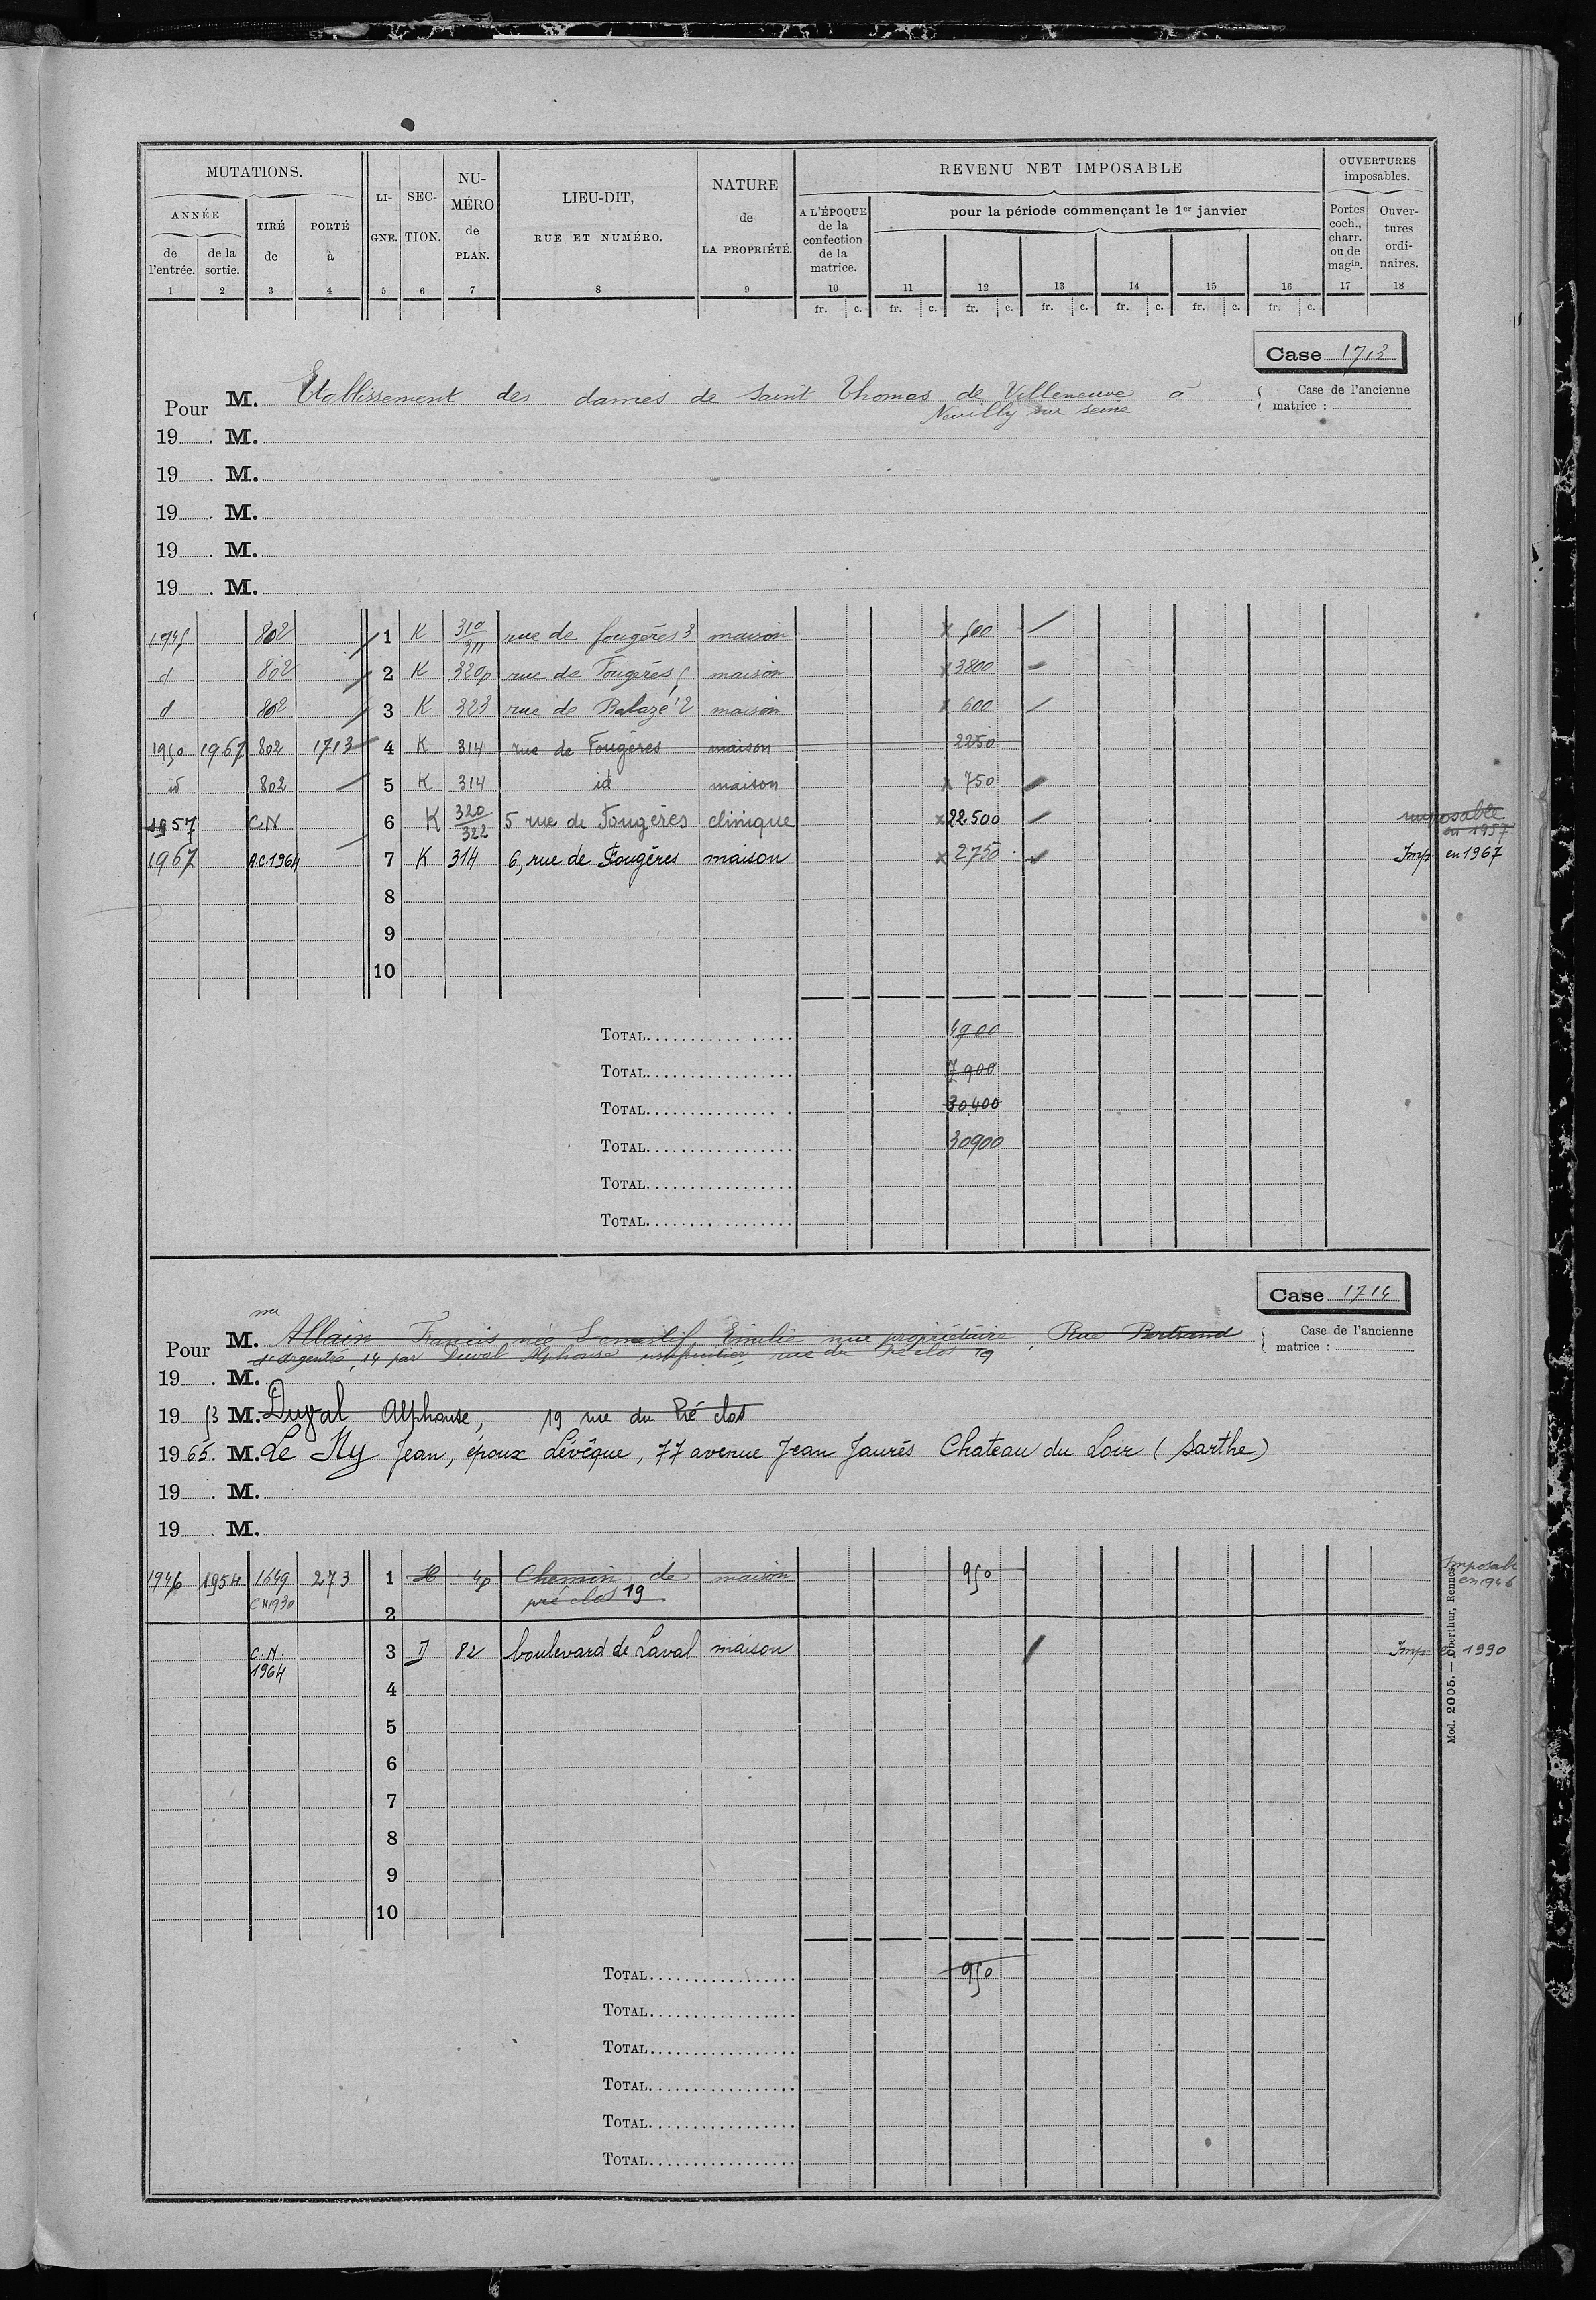 MUTATIONS.
ANNÉE
de l'entrée.
de la sortie.
TIRÉ de
PORTÉ à
LIGNE.
SECTION.
NUMÉRO de PLAN.
LIEU-DIT,
RUE ET NUMÉRO.
NATURE
de
LA PROPRIÉTÉ.
REVENU NET IMPOSABLE
A L'ÉPOQUE de la confection de la matrice.
pour la période commençant le 1er janvier
OUVERTURES imposables.
Portes coch., charr. ou de magin.
Ouvertures ordinaires.
1 2 3 4 5 6 7 8 9 10 11 12 13 14 15 16 17 18
fr. c. fr. c. fr. c. fr. c. fr. c. fr. c. fr. c.
Case 1713
Pour M. Etablissement des dames de Saint Thomas de Villeneuve à
Neuilly sur seine
Case de l'ancienne matrice :
19 . M.
19 . M.
19 . M.
19 . M.
19 . M.
1945 802 1 K 310/311 rue de fougères 3 maison x 500
d 802 2 K 320p rue de Fougères 5 maison x 3800
d 802 3 K 323 rue de Balazé 2 maison x 600
1950 1967 802 1713 4 K 314 rue de Fougères maison 2250
id 802 5 K 314 id maison x 750
1957 CN 6 K 320/322 5 rue de Fougères clinique x 22.500 imposable en 1957
1967 A.C.1964 7 K 314 6, rue de Fougères maison x 2750 Imp. en 1967
8
9
10
TOTAL 4900
TOTAL 7900
TOTAL 30400
TOTAL 30900
TOTAL
TOTAL
Case 1714
Pour M. Allain Francis née Emilie nue propriétaire, Rue Bertrand
d'Argentré, 14 par Duval Alphonse usufruitier, rue du Pré clos 19
Case de l'ancienne matrice :
19 . M.
19 53 M. Duval Alphonse, 19 rue du Pré clos
19 65. M. Le Ny Jean, époux Lévêque, 77 avenue Jean Jaurès Chateau du Loir (Sarthe)
19 . M.
19 . M.
1946 1954 1649 273 1 H 4p Chemin de maison 950 Imposable
CN1930 pré clos 19 en 1946
2
C.N. 3 D 82 boulevard de Laval maison Imp. en 1990
1964
4
5
6
7
8
9
10
TOTAL 950
TOTAL
TOTAL
TOTAL
TOTAL
TOTAL
Mod. 2005. — Oberthur, Rennes.